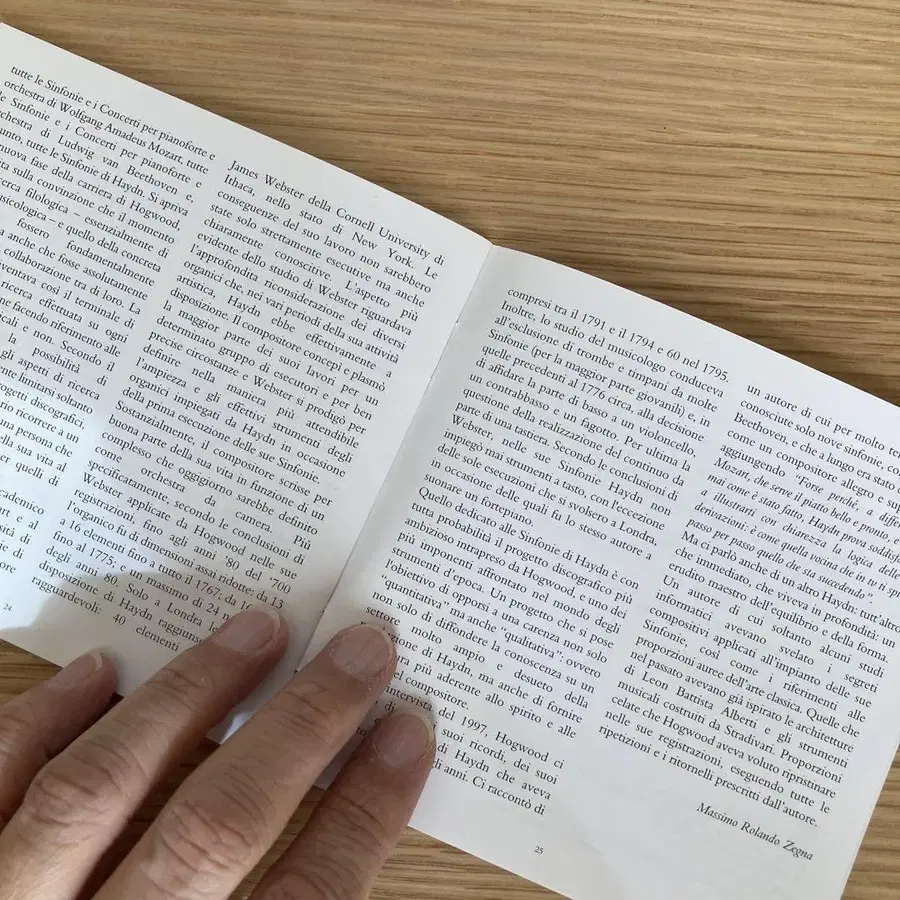 tutte le Sinfonie e i Concerti per pianoforte e
orchestra di Wolfgang Amadeus Mozart, tutte
le Sinfonie e i Concerti per pianoforte e
orchestra di Ludwig van Beethoven e,
tutte le Sinfonie di Haydn. Si apriva
nuova fase della carriera di Hogwood,
sulla convinzione che il momento
filologica – essenzialmente di
– e quello della concreta
fossero fondamentalmente
anche che fosse assolutamente
collaborazione tra di loro. La
così il terminale di
ricerca effettuata su ogni
facendo riferimento alle
e non. Secondo il
la possibilità di
gli aspetti di ricerca
limitarsi soltanto
progetti discografici.
ricorrere a un
una persona che
sua vita al
per quelli di
e al
di
di
24
James Webster della Cornell University di
Ithaca, nello stato di New York. Le
conseguenze del suo lavoro non sarebbero
state solo strettamente esecutive ma anche
chiaramente conoscitive. L'aspetto più
evidente dello studio di Webster riguardava
l'approfondita riconsiderazione dei diversi
organici che, nei vari periodi della sua attività
artistica, Haydn ebbe effettivamente a
disposizione. Il compositore concepì e plasmò
la maggior parte dei suoi lavori per un
determinato gruppo di esecutori e per ben
precise circostanze e Webster si prodigò per
definire nella maniera più attendibile
l'ampiezza e gli effettivi strumenti degli
organici impiegati da Haydn in occasione
della prima esecuzione delle sue Sinfonie.
Sostanzialmente, il compositore scrisse per
buona parte della sua vita in funzione di un
complesso che oggigiorno sarebbe definito
come orchestra da camera. Più
specificatamente, secondo le conclusioni di
Webster applicate da Hogwood nelle sue
registrazioni, fino agli anni '80 del '700
l'organico fu di dimensioni assai ridotte: da 13
a 16 elementi fino a tutto il 1767; da 16
fino al 1775, e un massimo di 24
degli anni '80. Solo a Londra le
disposizione di Haydn raggiuns
ragguardevoli: 40 elementi
compresi tra il 1791 e il 1794 e 60 nel 1795.
Inoltre, lo studio del musicologo conduceva
all'esclusione di trombe e timpani da molte
Sinfonie (per la maggior parte giovanili) e, in
quelle precedenti al 1776 circa, alla decisione
di affidare la parte di basso a un violoncello,
un contrabbasso e un fagotto. Per ultima la
questione della realizzazione del continuo da
parte di una tastiera. Secondo le conclusioni di
Webster, nelle sue Sinfonie Haydn non
impiegò mai strumenti a tasto, con l'eccezione
delle sole esecuzioni che si svolsero a Londra,
in occasione delle quali fu lo stesso autore a
suonare un fortepiano.
Quello dedicato alle Sinfonie di Haydn è con
tutta probabilità il progetto discografico più
ambizioso intrapreso da Hogwood, e uno dei
più imponenti affrontato nel mondo degli
strumenti d'epoca. Un progetto che si pose
l'obiettivo di opporsi a una carenza non solo
"quantitativa" ma anche "qualitativa": ovvero
non solo di diffondere la conoscenza su un
settore molto ampio e desueto della
di Haydn, ma anche di fornire
più aderente allo spirito e alle
compositore.
intervista del 1997, Hogwood ci
suoi ricordi, dei suoi
di Haydn che aveva
anni. Ci raccontò di
25
un autore di cui per molto
conosciute solo nove sinfonie, co
Beethoven, e che a lungo era stato
come un compositore allegro e su
aggiungendo "Forse perché, a diffe
Mozart, che serve il piatto bello e pronto, e
mai come è stato fatto, Haydn prova soddisf
a illustrarti con chiarezza la logica delle
derivazioni: è come quella vocina che in tv ti sp
passo per passo quello che sta succedendo".
Ma ci parlò anche di un altro Haydn: tutt'altro
che immediato, che viveva in profondità: un
erudito maestro dell'equilibrio e della forma
Un autore di cui soltanto alcuni studi
informatici avevano svelato i segreti
compositivi applicati all'impianto delle sue
Sinfonie, così come i riferimenti alle
proporzioni auree dell'arte classica. Quelle che
nel passato avevano già ispirato le architetture
di Leon Battista Alberti e gli strumenti
musicali costruiti da Stradivari. Proporzioni
celate che Hogwood aveva voluto ripristinare
nelle sue registrazioni, eseguendo tutte le
ripetizioni e i ritornelli prescritti dall'autore.
Massimo Rolando Zegna